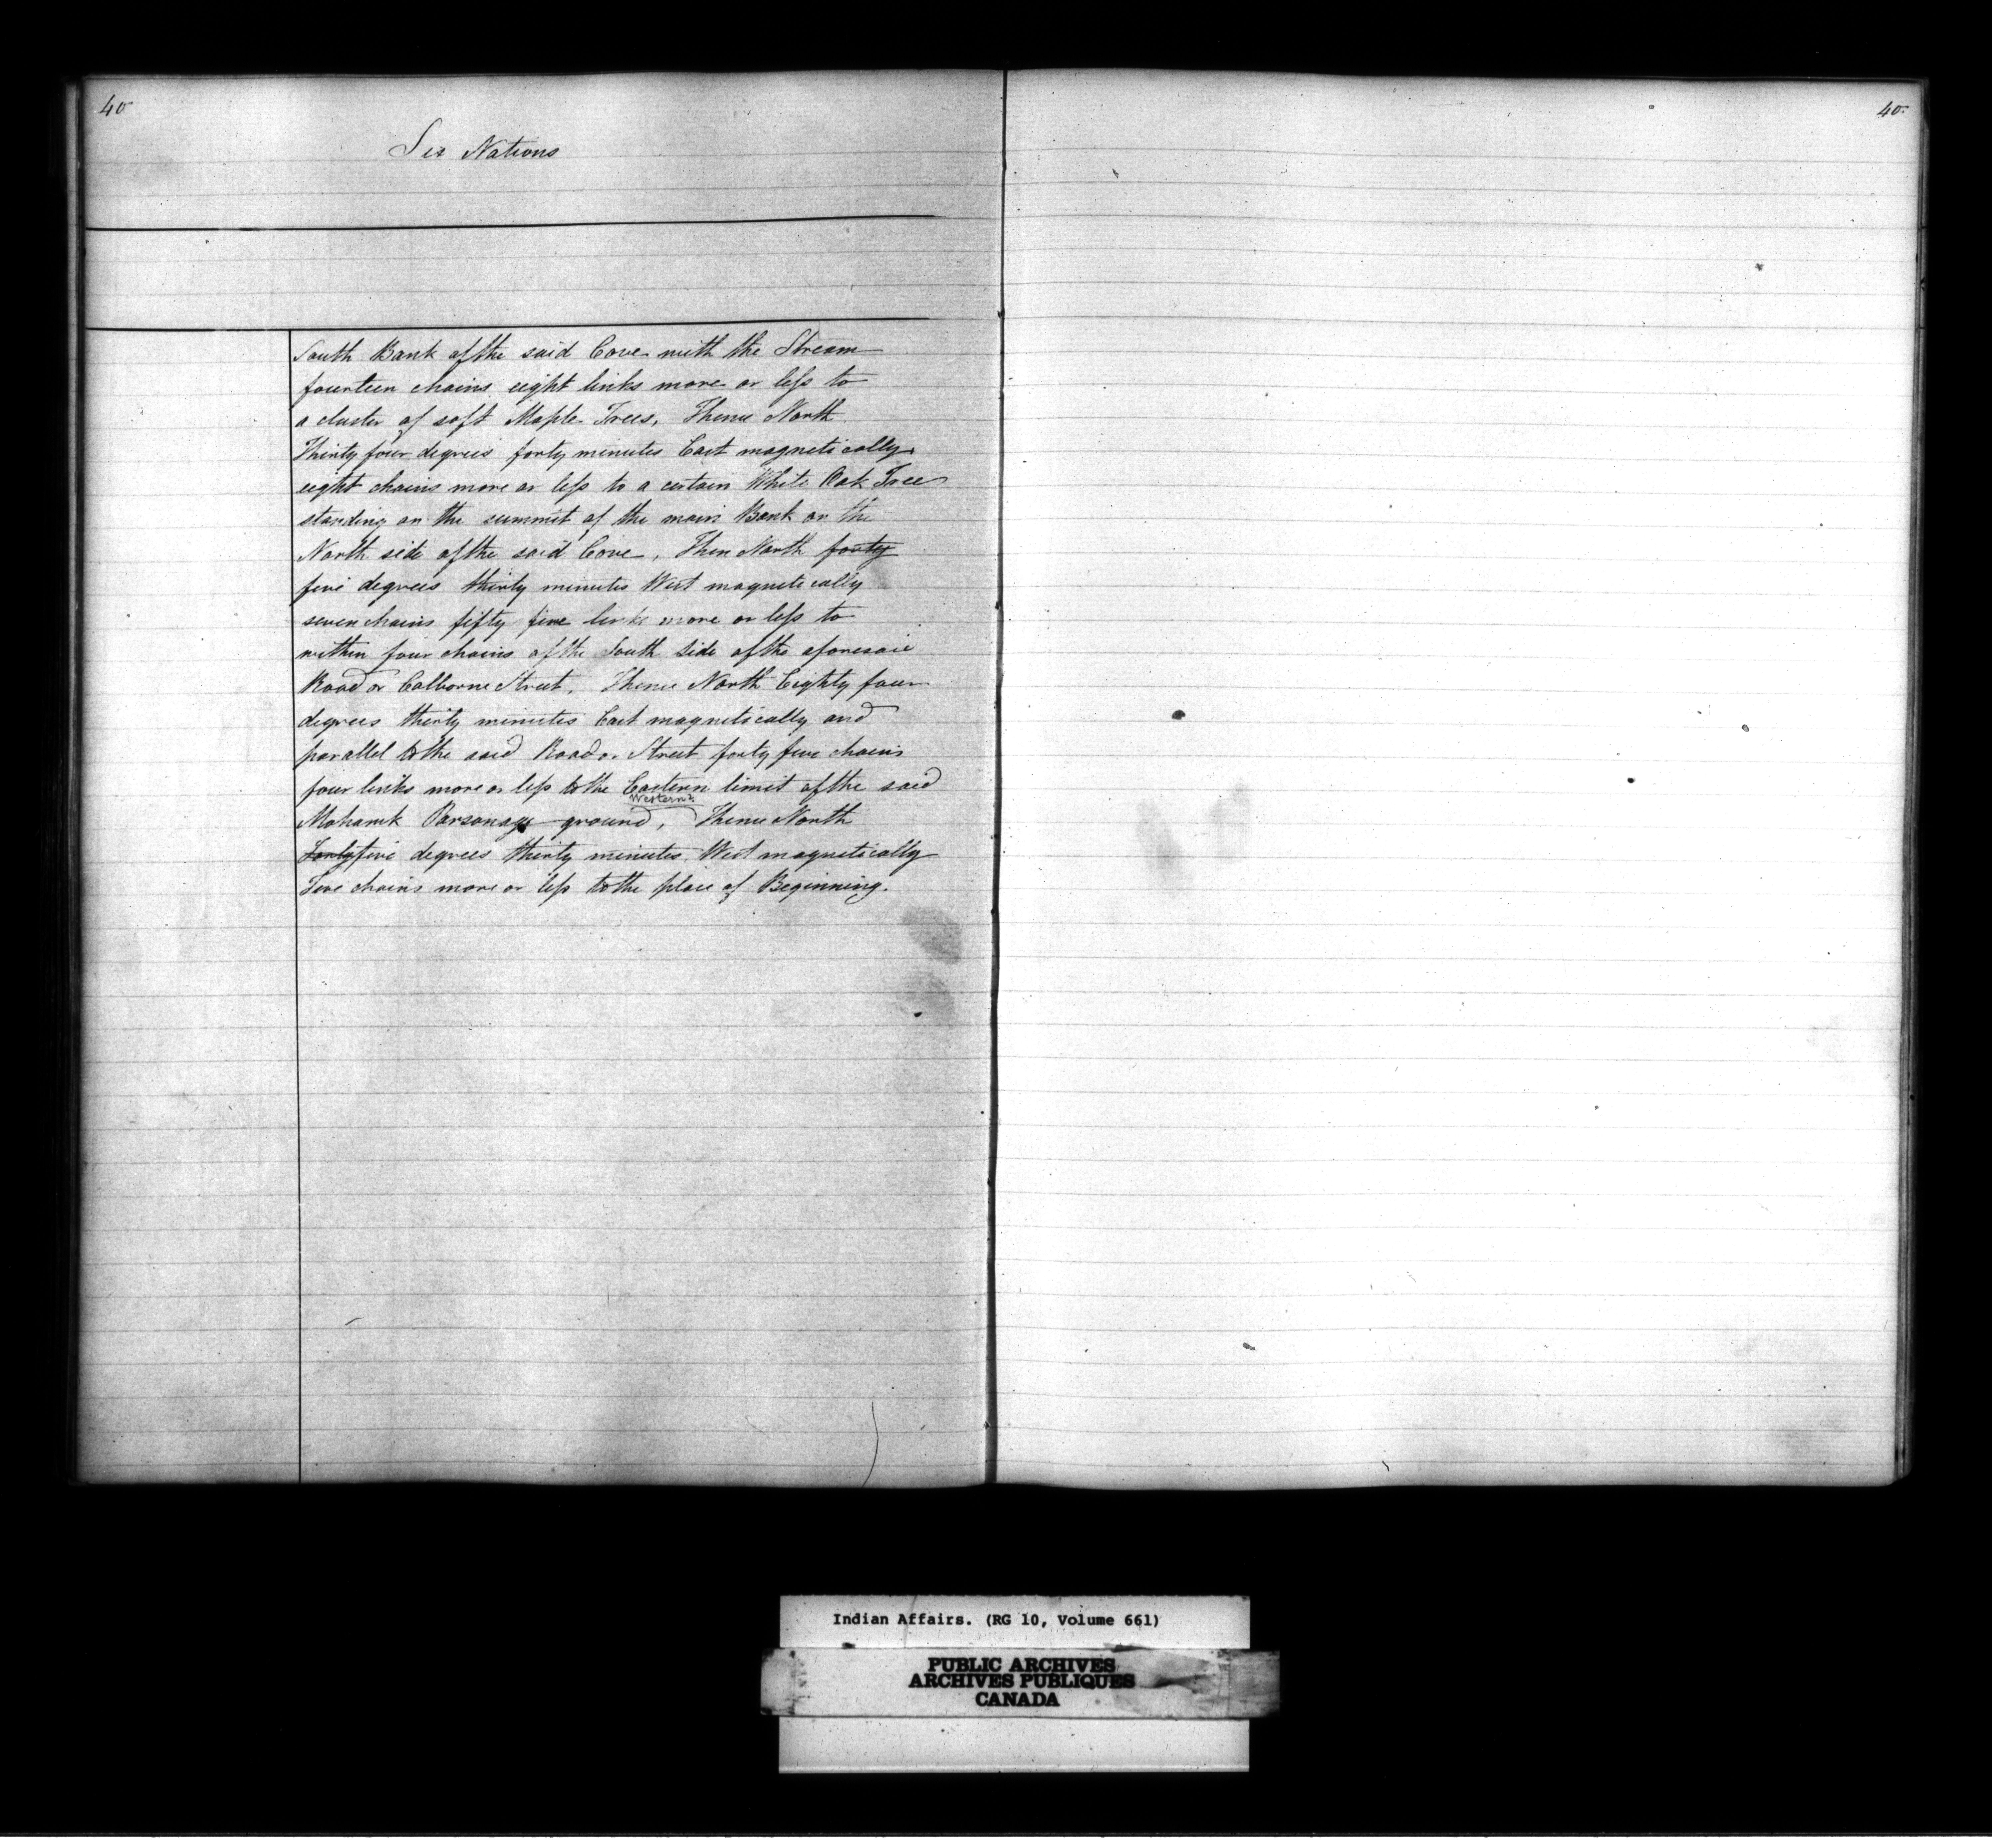 40
40.
Six Nations
South Bank of the said Cove with the Stream
fourteen chains eight links more or less to
a cluster of soft Maple Trees, Thence North
Thirty four degrees forty minutes East magnetically
eight chains more or less to a certain White Oak Tree
standing on the summit of the main Bank on the
North side of the said Cove, Then North forty
five degrees thirty minutes West magnetically
seven chains fifty five links more or less to
within four chains of the South Side of the aforesaid
Road or Colborne Street, Thence North Eighty four
degrees thirty minutes East magnetically and
parallel to the said Road or Street forty five chains
four links more or less to the Eastern limit of the said
Western?
Mohawk Parsonage ground, Thence North
Forty five degrees thirty minutes West magnetically
Five chains more or less to the place of Beginning.
Indian Affairs. (RG 10, Volume 661)
PUBLIC ARCHIVES
ARCHIVES PUBLIQUES
CANADA